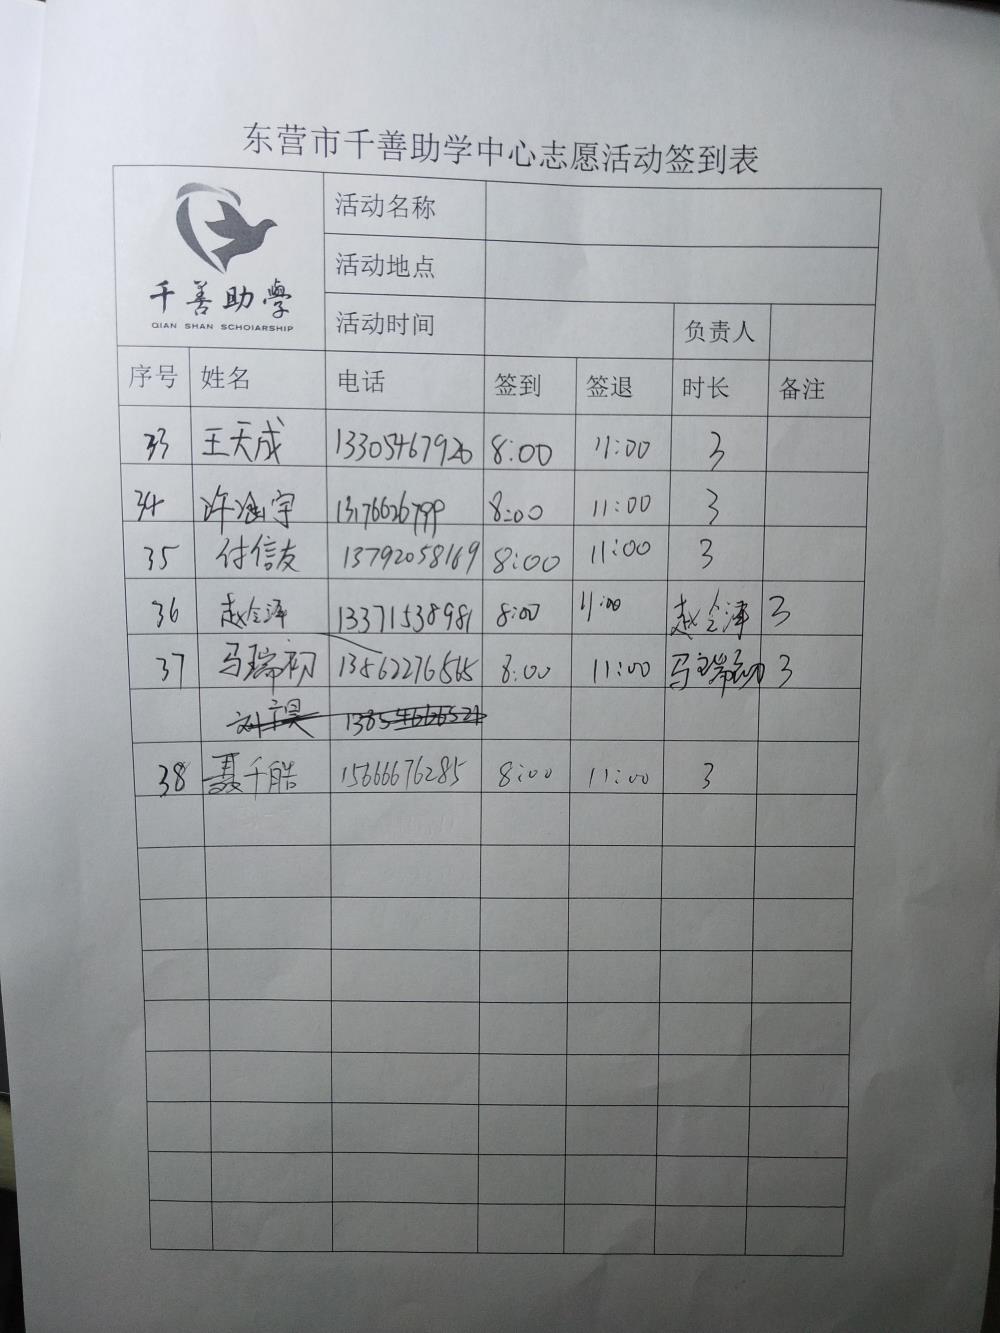 东营市千善助学中心志愿活动签到表
千善助學
QIAN SHAN SCHOIARSHIP
活动名称
活动地点
活动时间 负责人
序号 姓名 电话 签到 签退 时长 备注
33 王天成 13305467920 8:00 11:00 3
34 许涵宇 13176626799 8:00 11:00 3
35 付信友 13792058169 8:00 11:00 3
36 赵令泽 13371538981 8:00 11:00 赵令泽 3
37 马瑞初 13562276565 8:00 11:00 马瑞初 3
38 聂千皓 15666676285 8:00 11:00 3